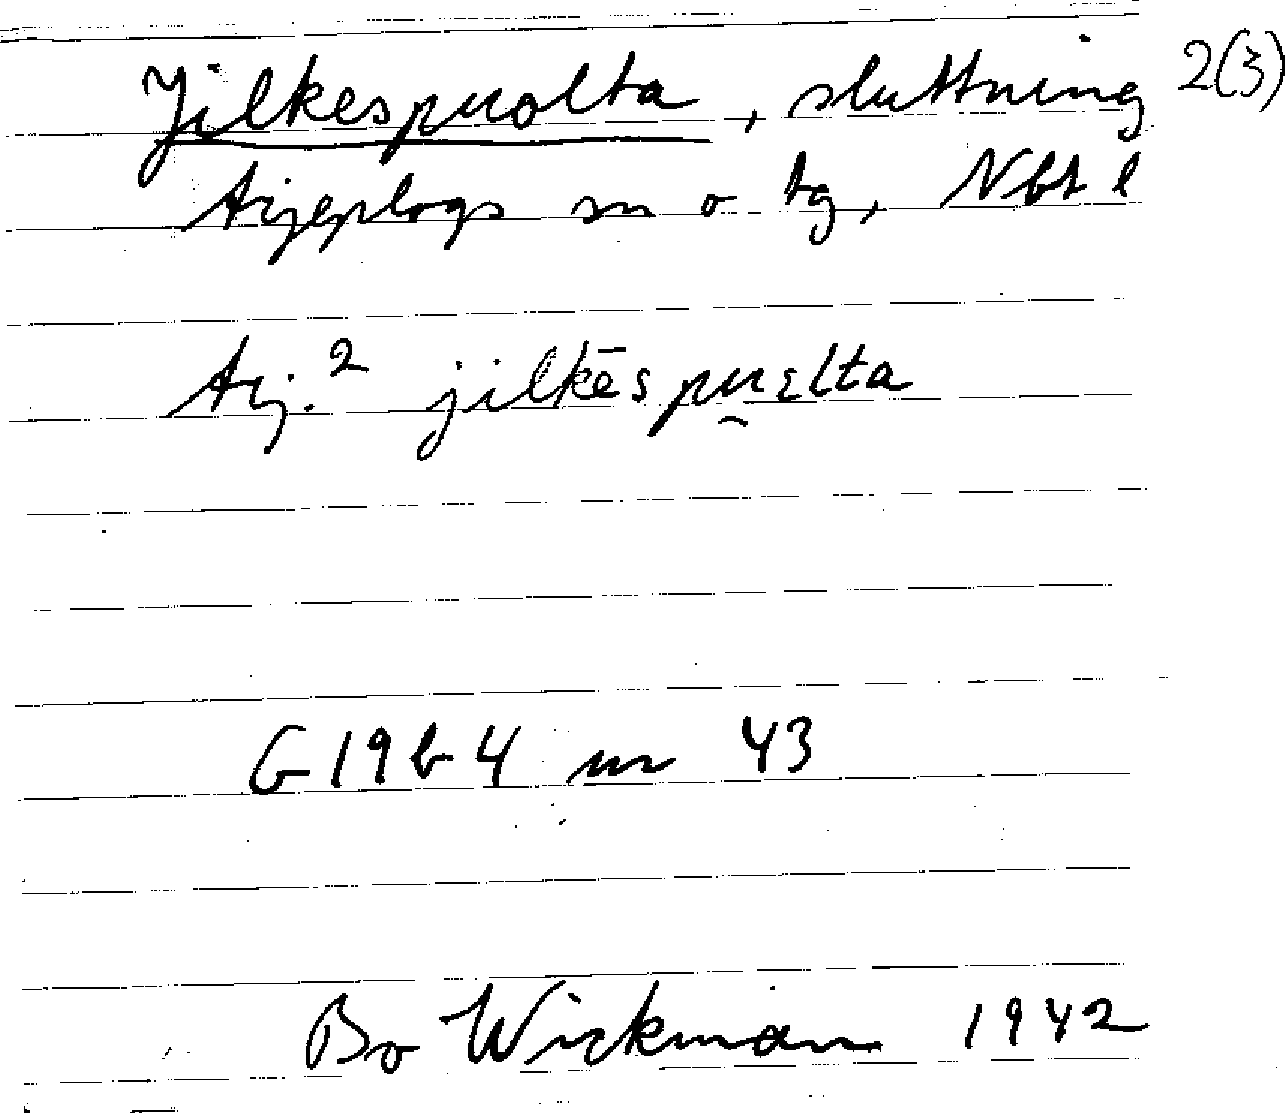 Jilkespuolta, sluttning 2(3)
Arjeplogs sn o tg, Nbt l
Arj.² jilkēspu̯ɛlta
G 19 b 4 nr 43
Bo Wickman 1942